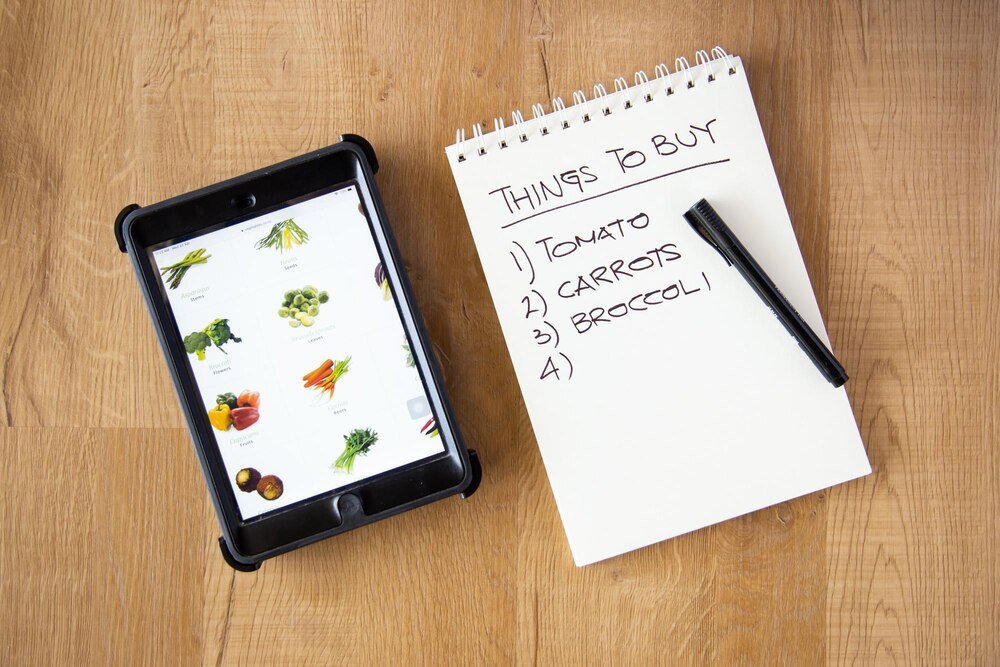 Asparagus
Stems
Beans
Seeds
Broccoli
Flowers
Brussels Sprouts
Leaves
Capsicums
Fruits
Carrots
Roots
THINGS TO BUY
1) TOMATO
2) CARROTS
3) BROCCOLI
4)